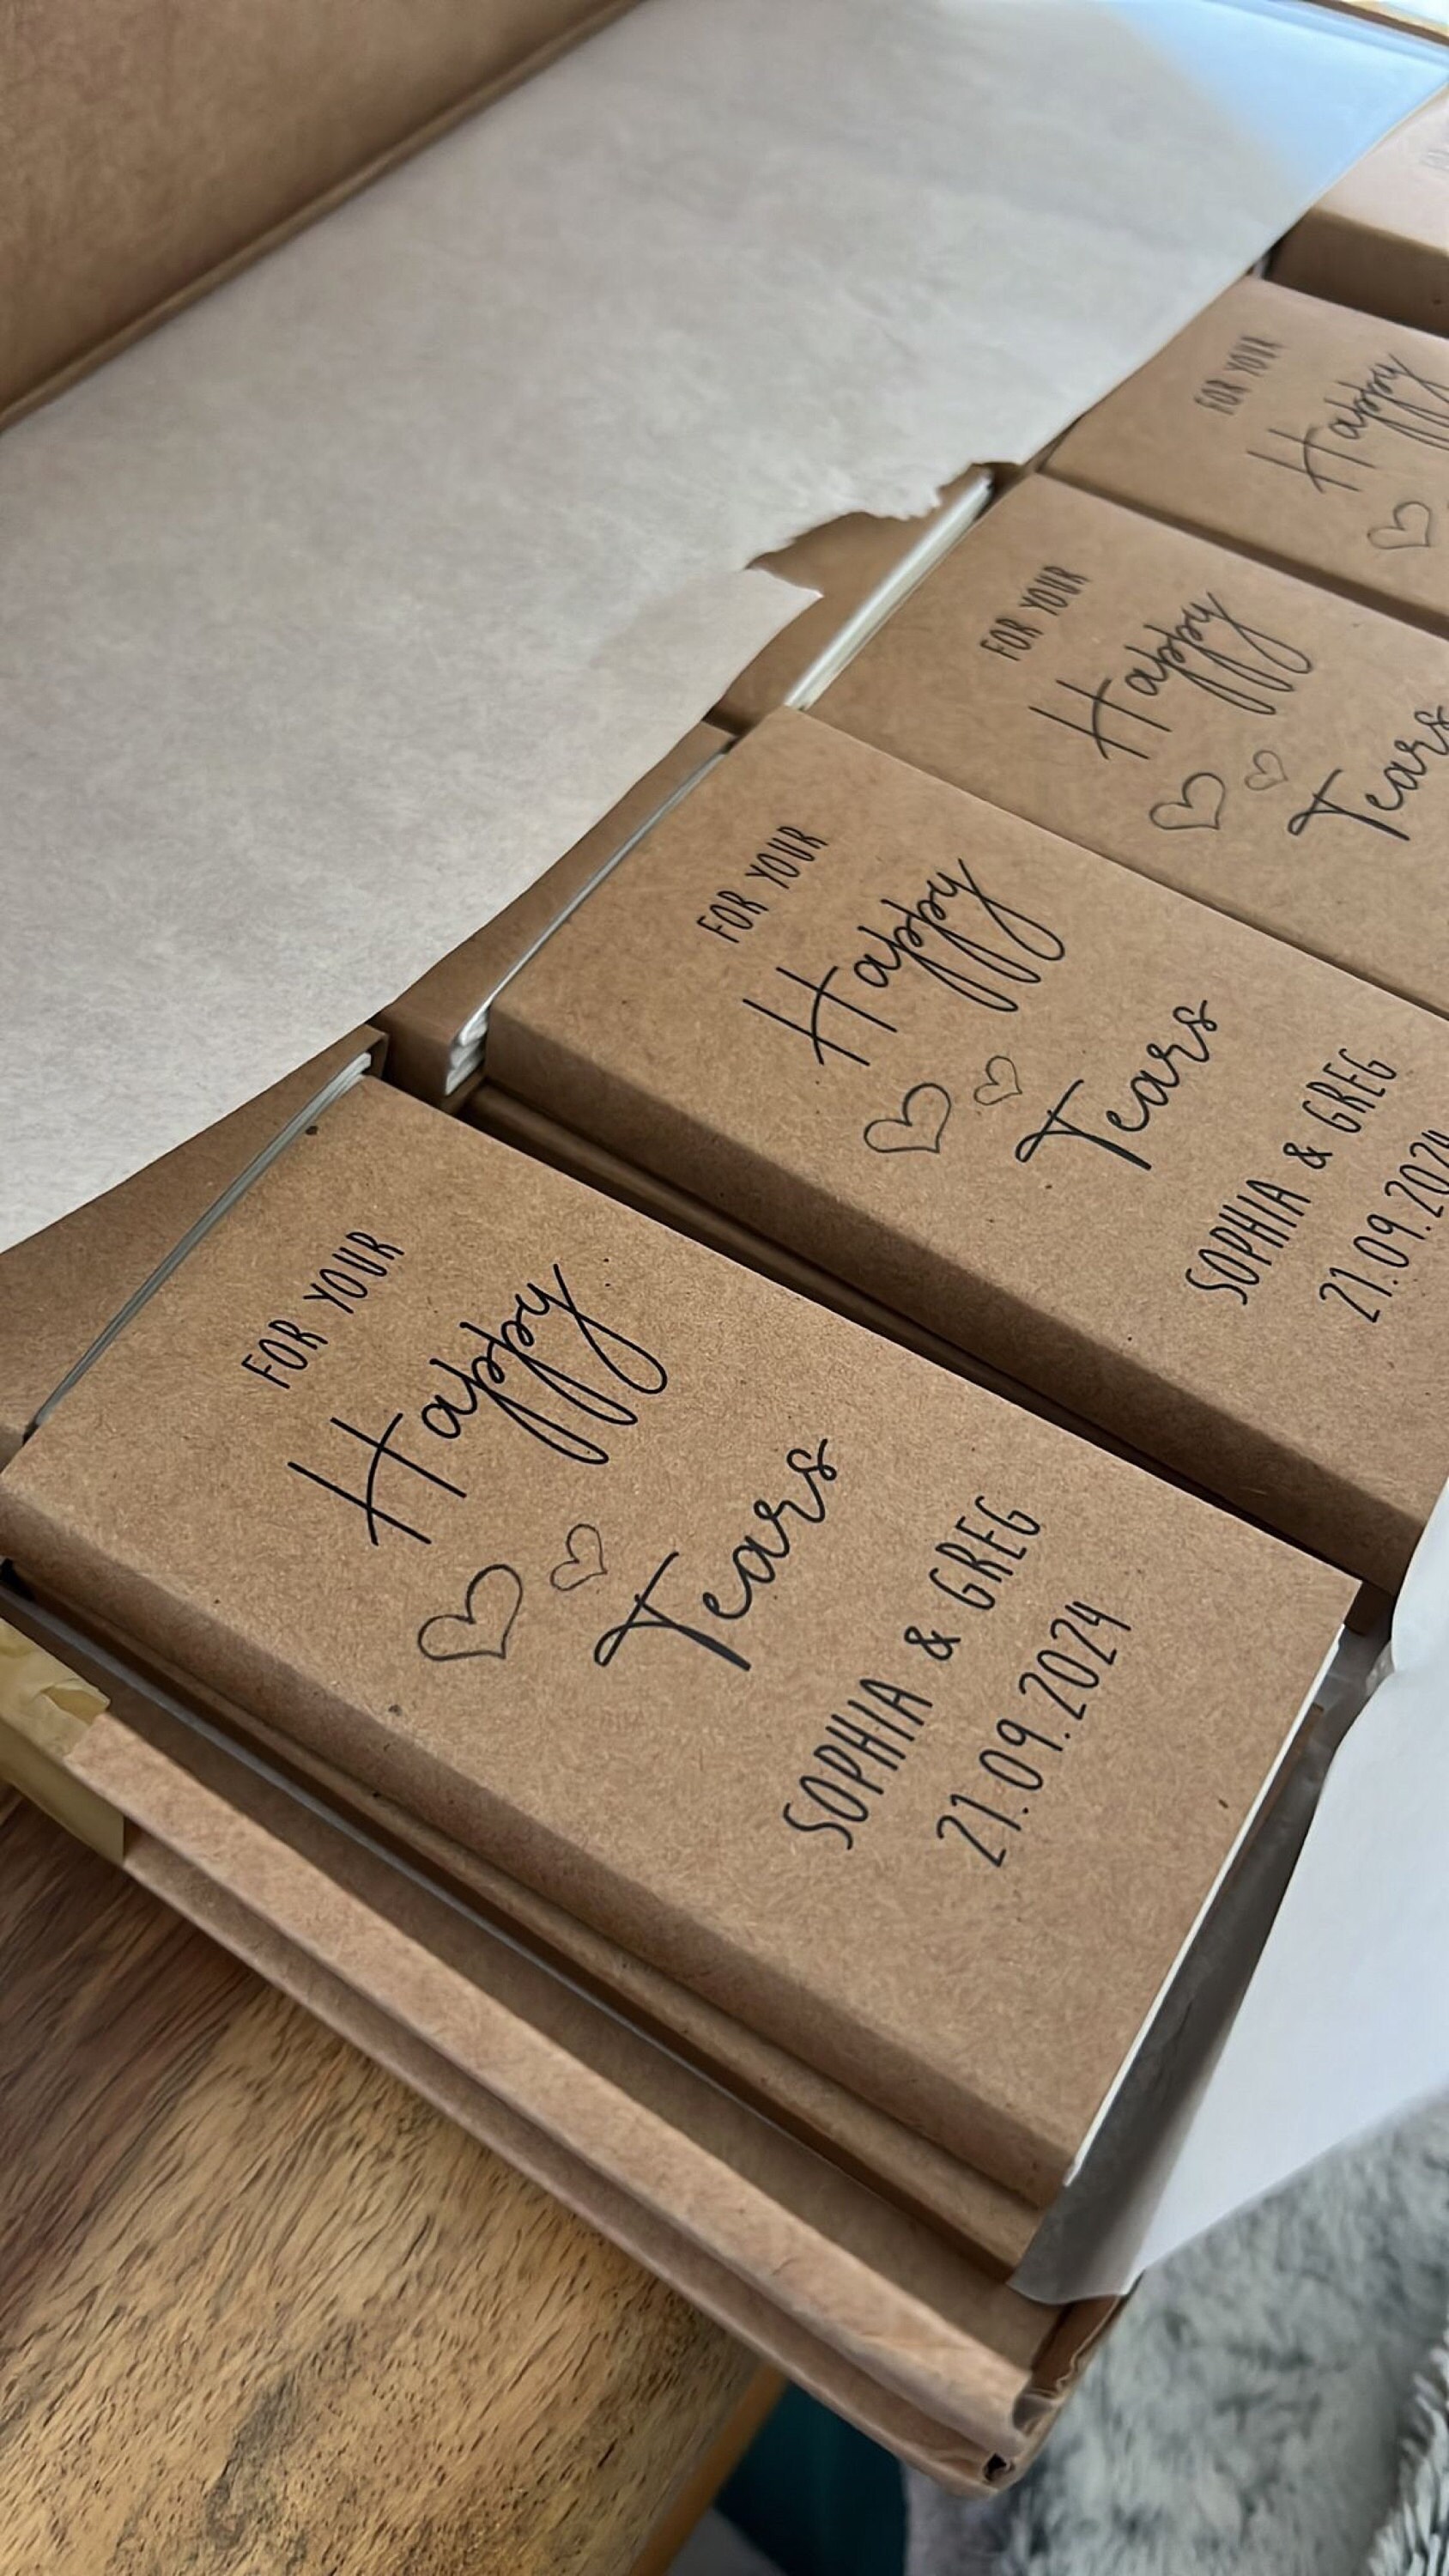 FOR YOUR
Happy
Tears
SOPHIA & GREG
21.09.2024
FOR YOUR
Happy
Tears
SOPHIA & GREG
21.09.2024
FOR YOUR
Happy
Tears
FOR YOUR
Happy